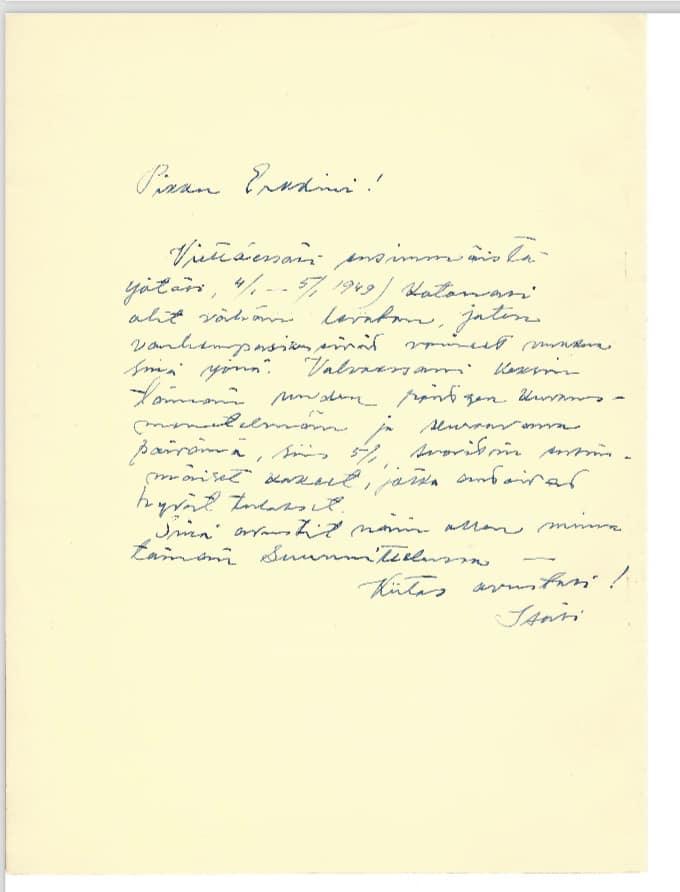 Pikku Erkkini!
Viettäessäsi ensimmäistä
yötäsi, 4/1 – 5/1 1949) kotonasi
olit vähän levoton, joten
vanhempasi eivät voineet nukkua
sinä yönä. Valvoessani keksin
tämän uuden
menetelmän ja seuraavana
päivänä, siis 5/1, suoritin ensim-
mäiset kokeet, jotka antoivat
hyvät tulokset.
Sinä avustit näin ollen minua
tämän suunnittelussa —
Kiitos avustasi!
Isäsi